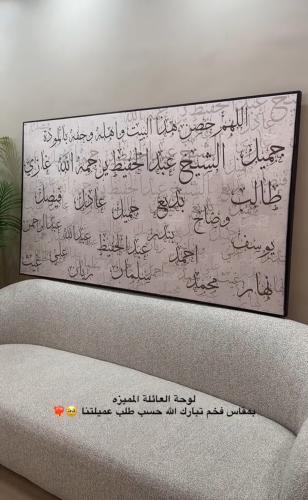 اللهم حصن هذا البيت واهله وحفه بالمودة
جميل الشيخ عبدالحفيظ رحمه الله غازي
طالب وضاح بديع جميل عادل فيصل
يوسف احمد بندر عبدالحفيظ عبدالله عبدالرحمن
نهار محمد سلمان ريان علي غيث
لوحة العائلة المميزه
بمقاس فخم تبارك الله حسب طلب عميلتنا 🥹❤️‍🔥